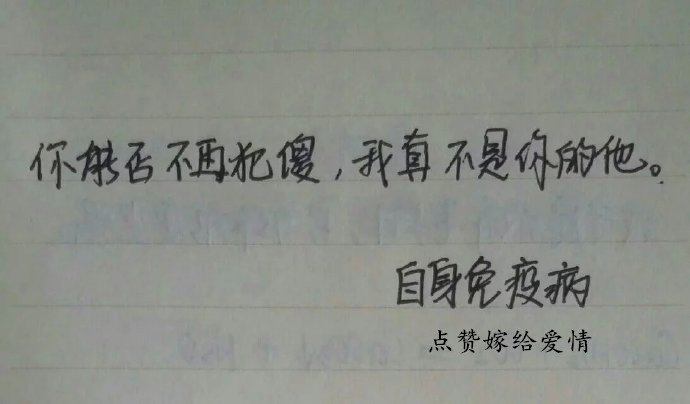 你能否不再犯傻，我真不是你的他。
自身免疫病
点赞嫁给爱情